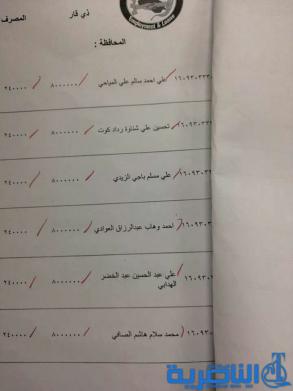 ذي قار المصرف
Employment & Labour
المحافظة :
١٦٠٩٣٠٣٣ علي احمد سالم علي المياحي ٨٠٠٠٠٠٠ ٢٤٠٠٠٠
١٦٠٩٣٠٣ تحسين علي شناوة رداد كوت ٨٠٠٠٠٠٠ ٢٤٠٠٠٠
١٦٠٩٣٠٣ علي مسلم باجي الزيدي ٨٠٠٠٠٠٠ ٢٤٠٠٠٠
١٦٠٩٣٠ احمد وهاب عبدالرزاق العوادي ٨٠٠٠٠٠٠ ٢٤٠٠٠٠
١٦٠٩٣٠ علي عبد الحسين عبد الخضر ٨٠٠٠٠٠٠ ٢٤٠٠٠٠
الهدابي
١٦٠٩٣٠ محمد سلام هاشم الصافي ٨٠٠٠٠٠٠ ٢٤٠٠٠٠
الناصرية